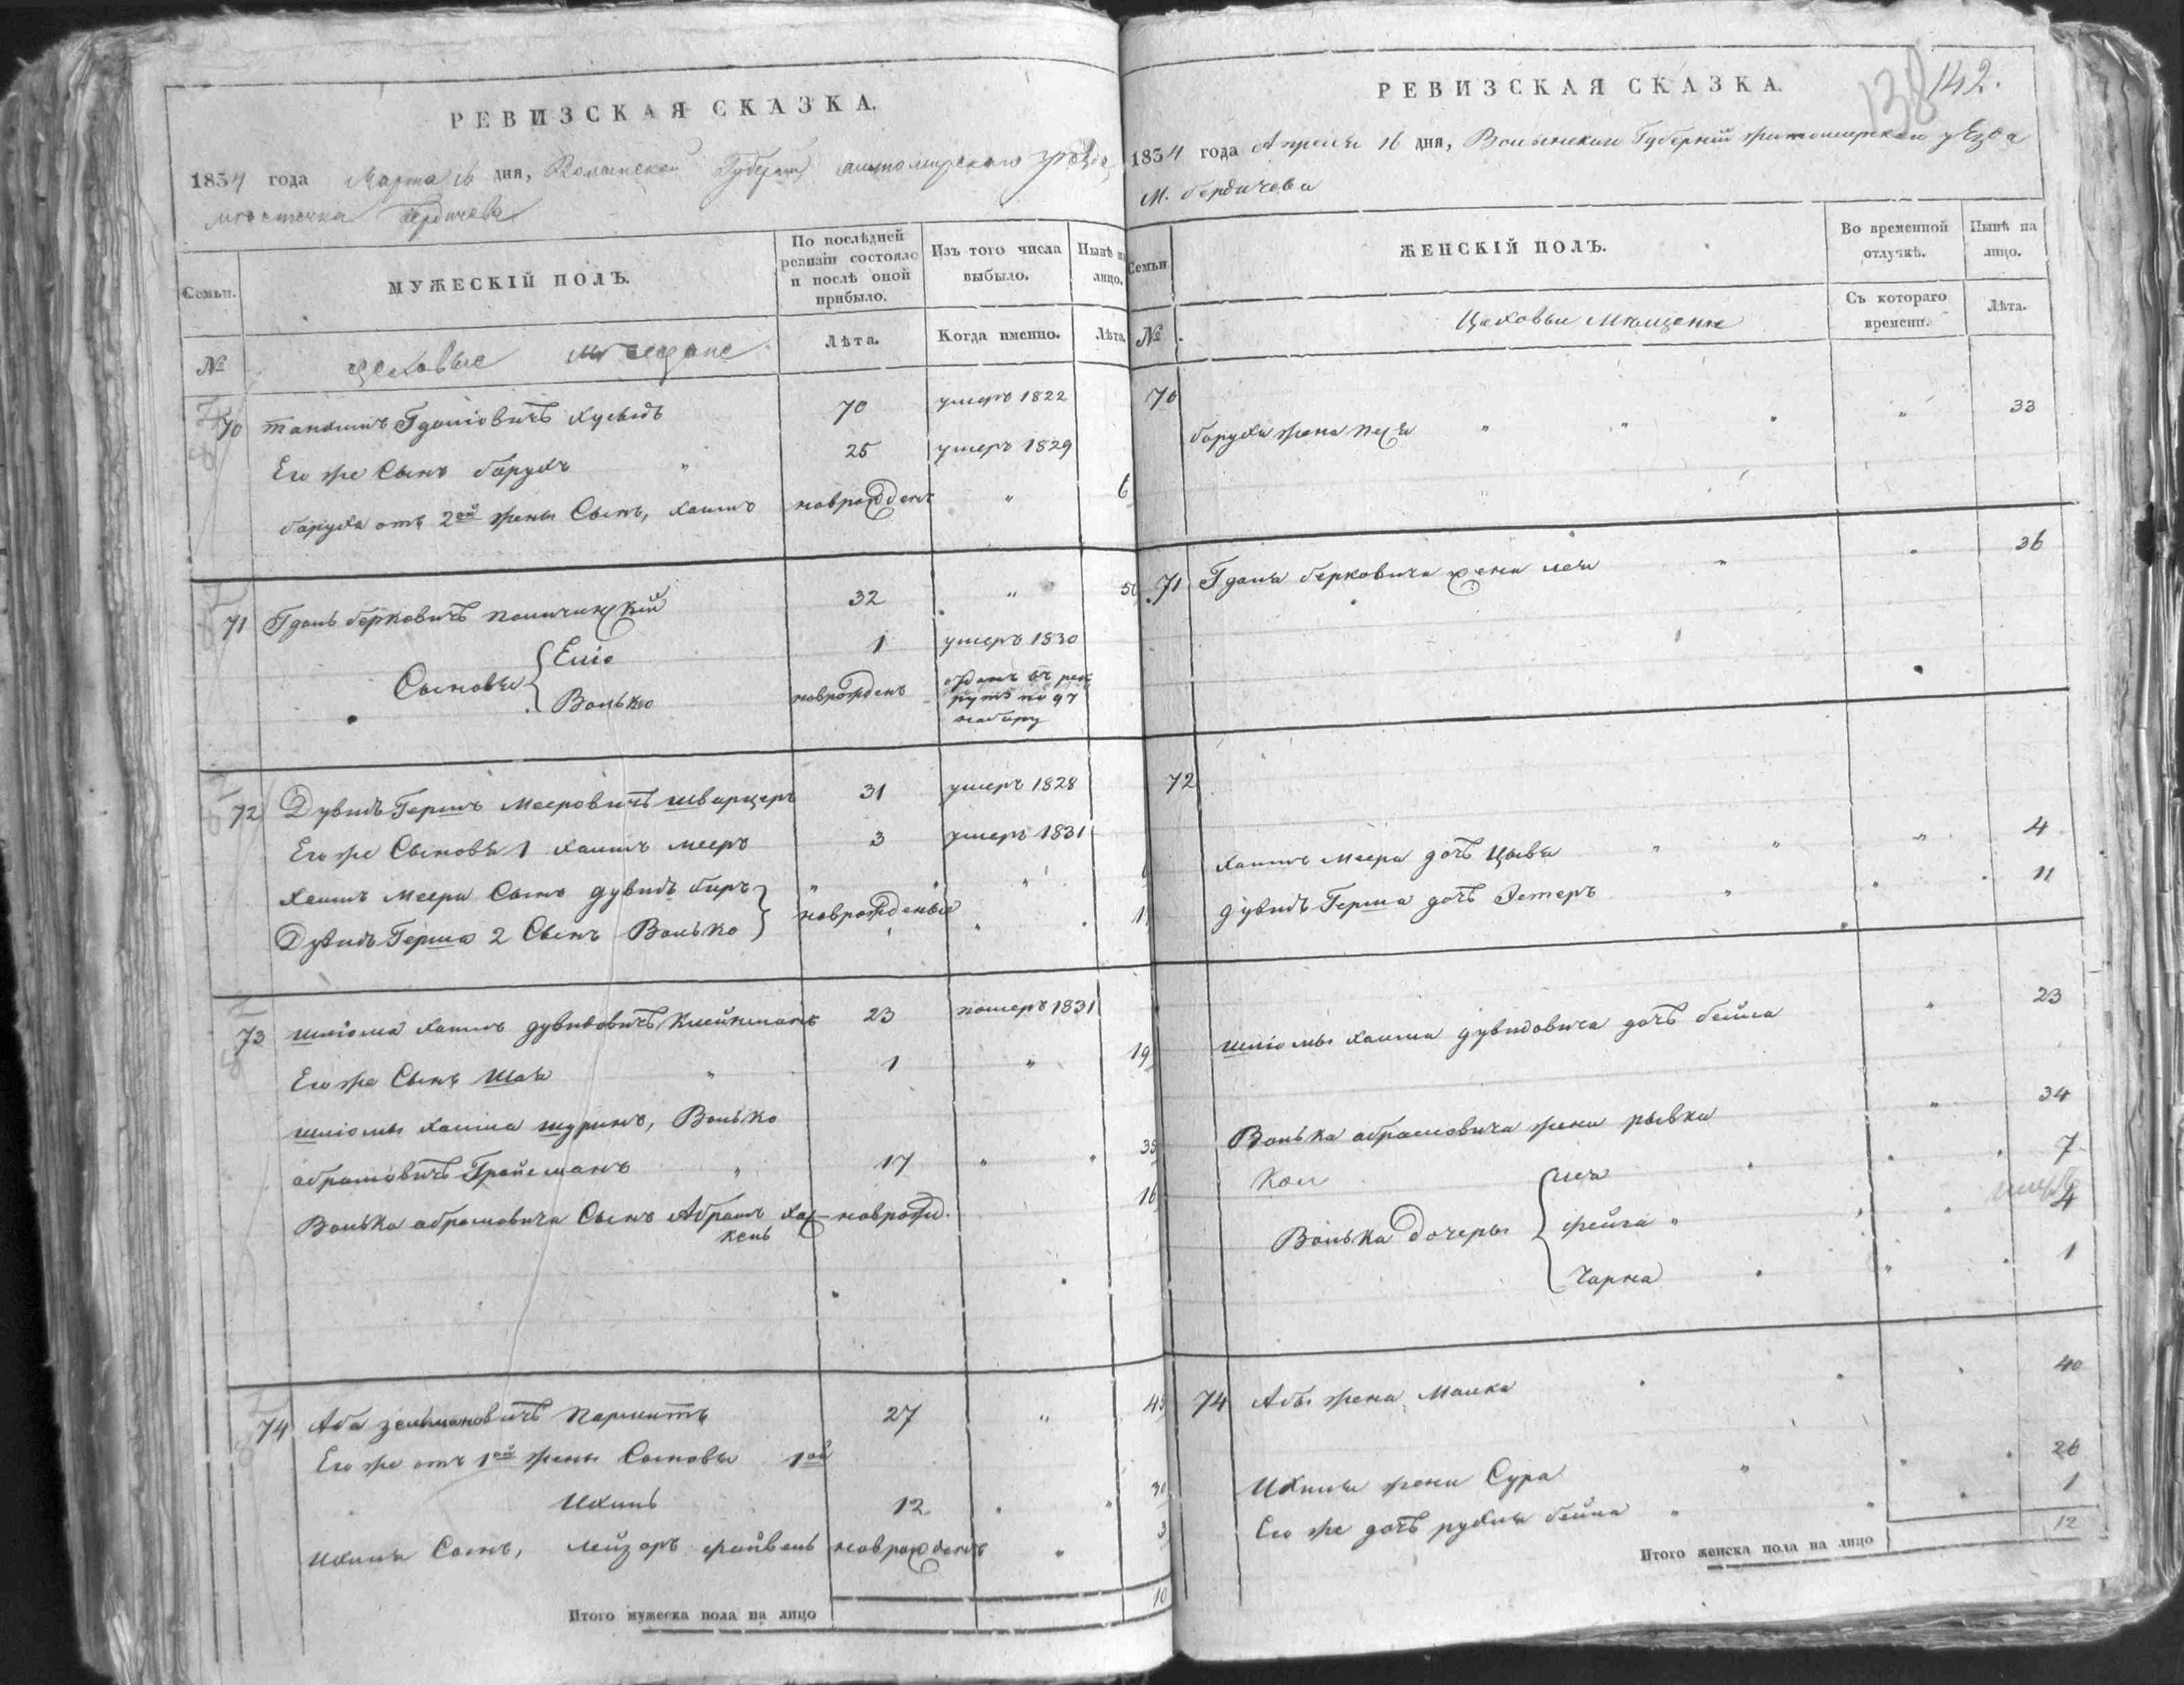 РЕВИЗСКАЯ СКАЗКА.
1834 года Марта 16 дня, Волынской Губерніи житомирского уѣзда
мѣстечка Бердичева
Семьи.
МУЖЕСКІЙ ПОЛЪ.
По послѣдней ревизіи состояло и послѣ оной прибыло.
Изъ того числа выбыло.
Нынѣ на лицо.
№
цеховые мѣщане
Лѣта.
Когда именно.
Лѣта.
70 Танхимъ Гдаліовичъ 70 умеръ 1822
Его же Сынъ борухъ " 25 умеръ 1829
боруха отъ 2ой жены Сынъ, хаимъ новрожденъ " 6
71 Гдаль берковичъ 32 " 50
Сыновья
Еліо 1 умеръ 1830
Волько новрожденъ отданъ въ рекруты по 97 набору
72 Дувидъ Гершъ Мееровичъ шварцеръ 31 умеръ 1828
Его же Сыновья 1 хаимъ мееръ 3 умеръ 1831
хаимъ Меера Сынъ дувидъ беръ " "
Дувидъ Герша 2 Сынъ Волько новрожденые " 11
73 шліома хаимъ дувидовичъ Клейнманъ 23 померъ 1831
Его же Сынъ Шая " 1 " 19
шліомы хаима шуринъ, Волько
абрамовичъ Гройсманъ " 17 " 35
Волька абрамовича Сынъ Абрамъ новрожд. 16
74 Аба зельмановичъ 27 " 45
Его же отъ 1ой жены Сыновья 1ой
Ихиль 12 " 30
Ихиля Сынъ, лейзоръ файвель новрожденъ " 3
Итого мужеска пола на лицо 10
138 142.
РЕВИЗСКАЯ СКАЗКА.
1834 года Апреля 16 дня, Волынской Губерній житомирскаго уѣзда
М. бердичева
Семьи
ЖЕНСКІЙ ПОЛЪ.
Во временной отлучкѣ.
Нынѣ на лицо.
№
Цеховыи Мѣщане
Съ котораго времени.
Лѣта.
70
боруха жена Песя " " " 33
71 Гдаля берковича жена лея " 36
72
хаимъ Меера дочь Цывья " " " 4
дувидъ Герша дочь Эстеръ " 11
шліомы хаима дувидовича дочь бейла " 23
Волька абрамовича жена рывка " 34
Волька дочеры
леа 7
фейга " 4
Чарна " 1
74 Абы жена Малка 40
Ихиля жена Сура " 26
Его же дочь рухля бейла " 1
Итого женска пола на лицо 12